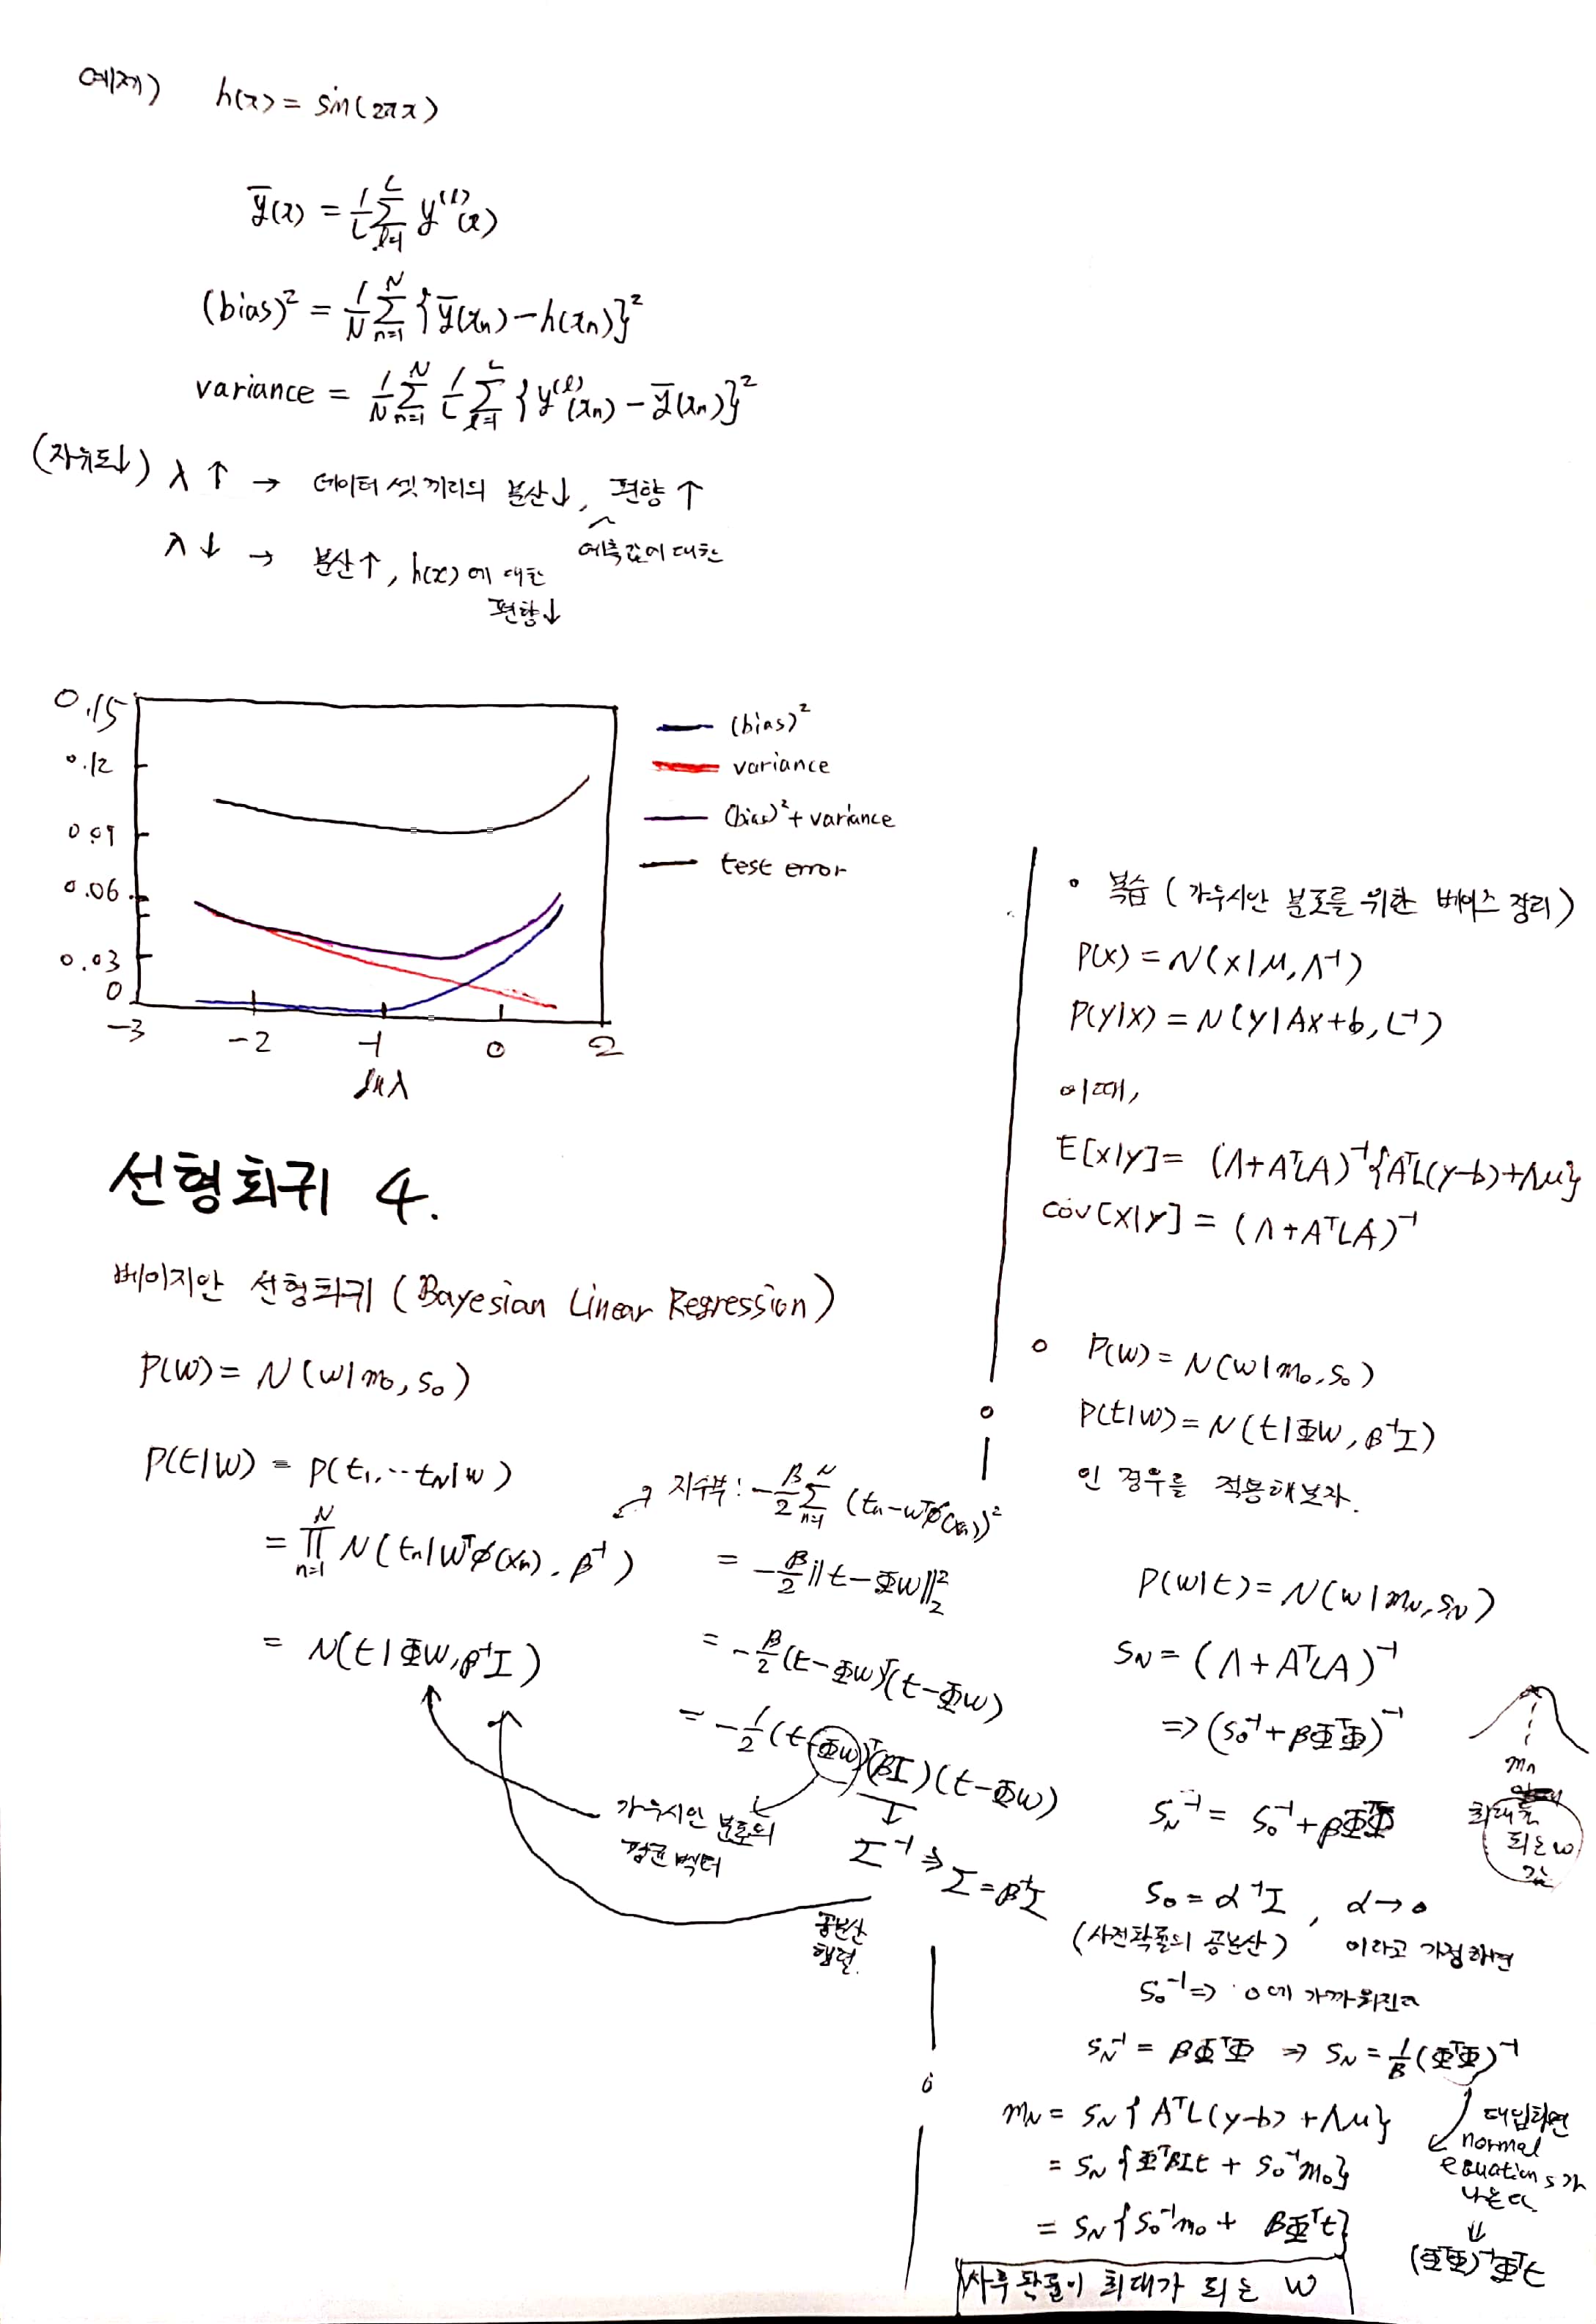 예제) h(x) = sin(2πx)
ȳ(x) = 1/L Σ_{l=1}^{L} y^{(l)}(x)
(bias)² = 1/N Σ_{n=1}^{N} {ȳ(xn) - h(xn)}²
variance = 1/N Σ_{n=1}^{N} 1/L Σ_{l=1}^{L} {y^{(l)}(xn) - ȳ(xn)}²
(자유도↓) λ ↑ → 데이터 셋 끼리의 분산↓, 편향 ↑
예측값에 대한
λ ↓ → 분산↑, h(x)에 대한
편향↓
0.15
0.12
0.09
0.06
0.03
0
-3 -2 -1 0 2
ln λ
(bias)²
variance
(bias)² + variance
test error
선형회귀 4.
베이지안 선형회귀 (Bayesian Linear Regression)
P(w) = N(w|m₀, S₀)
P(t|w) = P(t₁, ⋯ tN|w)
= Π_{n=1}^{N} N(tn|wᵀφ(xn), β⁻¹)
= N(t|Φw, β⁻¹I)
지수부: -β/2 Σ_{n=1}^{N} (tn - wᵀφ(xn))²
= -β/2 ||t - Φw||₂²
= -β/2 (t - Φw)ᵀ(t - Φw)
= -1/2 (t - Φw)ᵀ(βI)(t - Φw)
가우시안 분포의
평균 벡터
Σ⁻¹ ⇒ Σ = β⁻¹I
공분산
행렬.
• 복습 (가우시안 분포를 위한 베이스 정리)
P(x) = N(x|μ, Λ⁻¹)
P(y|x) = N(y|Ax+b, L⁻¹)
이때,
E[x|y] = (Λ+AᵀLA)⁻¹{AᵀL(y-b)+Λμ}
cov[x|y] = (Λ+AᵀLA)⁻¹
○ P(w) = N(w|m₀, S₀)
P(t|w) = N(t|Φw, β⁻¹I)
인 경우를 적용해보자.
P(w|t) = N(w|mN, SN)
SN = (Λ+AᵀLA)⁻¹
⇒ (S₀⁻¹ + βΦᵀΦ)⁻¹
SN⁻¹ = S₀⁻¹ + βΦᵀΦ
mn
최대가
되는 w
값
S₀ = α⁻¹I, α → 0
(사전확률의 공분산) 이라고 가정하면
S₀⁻¹ ⇒ 0에 가까워진다
SN⁻¹ = βΦᵀΦ ⇒ SN = 1/β (ΦᵀΦ)⁻¹
mN = SN {AᵀL(y-b) + Λμ}
= SN {ΦᵀβIt + S₀⁻¹m₀}
= SN {S₀⁻¹m₀ + βΦᵀt}
대입하면
normal
equations가
나온다.
⇓
(ΦᵀΦ)⁻¹Φᵀt
사후 확률이 최대가 되는 w